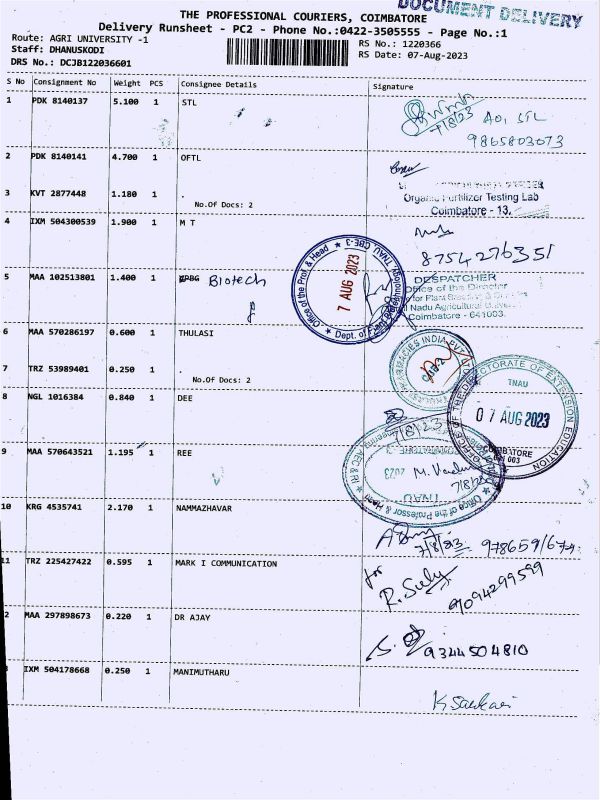 DOCUMENT DELIVERY
THE PROFESSIONAL COURIERS, COIMBATORE
Delivery Runsheet - PC2 - Phone No.:0422-3505555 - Page No.:1
Route: AGRI UNIVERSITY -1
RS No.: 1220366
Staff: DHANUSKODI
RS Date: 07-Aug-2023
DRS No.: DCJB122036601
S No Consignment No Weight PCS Consignee Details Signature
1 PDK 8140137 5.100 1 STL
7/8/23 AO, STL
9865803073
2 PDK 8140141 4.700 1 OFTL
3 KVT 2877448 1.180 1
No.Of Docs: 2
Organic Fertilizer Testing Lab
Coimbatore - 13.
4 IXM 504300539 1.900 1 M T
8754276351
Office of the Prof. & Head
7 AUG 2023
TNAU, CBE-3
5 MAA 102513801 1.400 1 Biotech
DESPATCHER
Office of the Director
for Plant
Nadu Agricultural
Coimbatore - 641003.
6 MAA 570286197 0.600 1 THULASI
THULASI PHARMACIES INDIA PVT
7 TRZ 53989401 0.250 1 .
No.Of Docs: 2
OFFICE OF THE DIRECTORATE OF EXTENSION EDUCATION
TNAU
07 AUG 2023
COIMBATORE
641 003
8 NGL 1016384 0.840 1 DEE
7/8/23
9 MAA 570643521 1.195 1 REE
Office of the Professor & Head
AEC & RI
TNAU
2023
7/8/23
10 KRG 4535741 2.170 1 NAMMAZHAVAR
7/8/23
11 TRZ 225427422 0.595 1 MARK I COMMUNICATION
for
9094299599
2 MAA 297898673 0.220 1 DR AJAY
9344504810
IXM 504178668 0.250 1 MANIMUTHARU